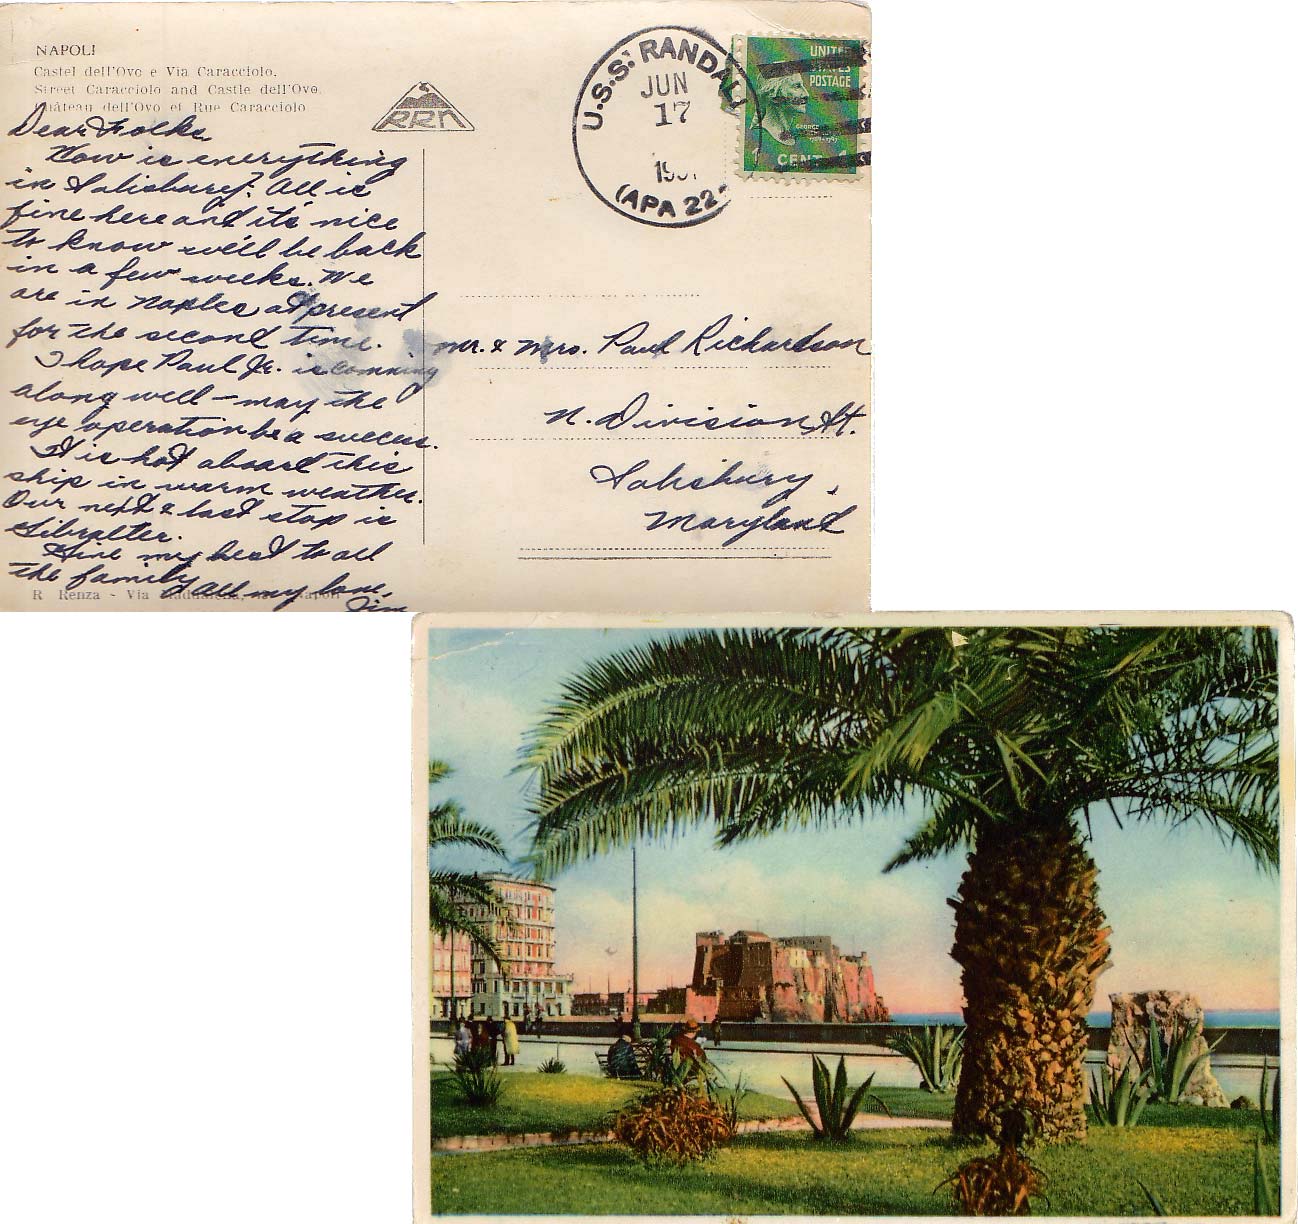 NAPOLI
Castel dell'Ovo e Via Caracciolo.
Street Caracciolo and Castle dell'Ovo.
Château dell'Ovo et Rue Caracciolo
RRN
U.S.S. RANDALL
JUN
17
(APA 22
UNITED
STATES
POSTAGE
GEORGE
1 CENT 1
Dear Folks
How is everything
in Salisbury? All is
fine here and it's nice
to know we'll be back
in a few weeks. We
are in Naples at present
for the second time.
I hope Paul Jr. is comming
along well – may the
eye operation be a success.
It is hot aboard this
ship in warm weather.
Our next & last stop is
Gibralter.
Give my best to all
the family
All my love,
Jim
Mr. & Mrs. Paul Richardson
N. Division St.
Salisbury,
Maryland
R Renza - Via Maddalena, Napoli